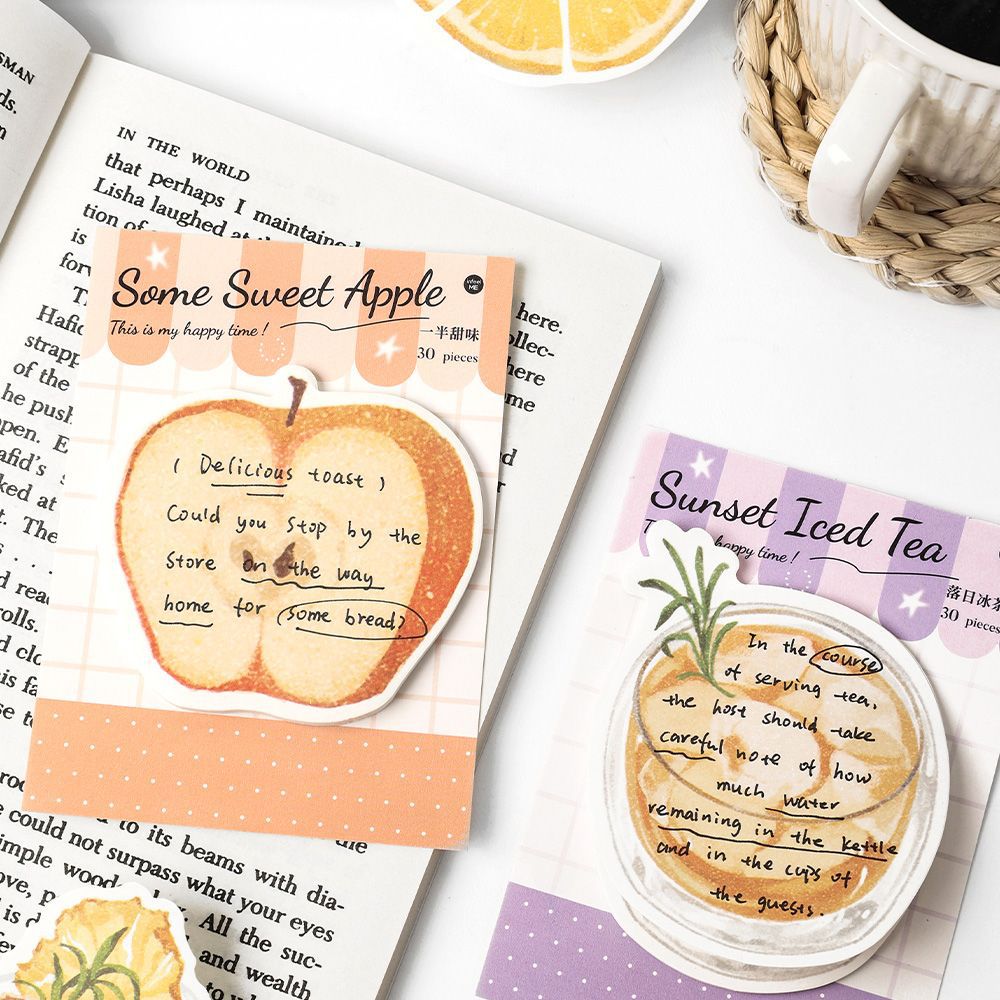 SMAN
ds.
IN THE WORLD
that perhaps I maintained
Lisha laughed at
tion of
is
for
here.
ollec-
here
me
Hafid
strapp
of the
he push
open. E
afid's
ked at
t. The
d
d read
olls.
d
is fa
se to
could to its beams with dia-
could not surpass what your eyes
simple wood
ove, p
is
All the suc-
and wealth
Some Sweet Apple
infeel
ME
This is my happy time!
一半甜味
30 pieces
( Delicious toast )
Could you stop by the
store on the way
home for some bread?
Sunset Iced Tea
happy time!
落日冰茶
30 pieces
In the course
of serving tea,
the host should take
careful note of how
much water
remaining in the kettle
and in the cups of
the guests.